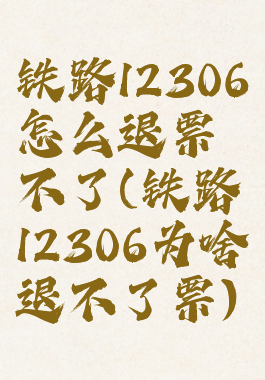 铁路12306
怎么退票
不了(铁路
12306为啥
退不了票)